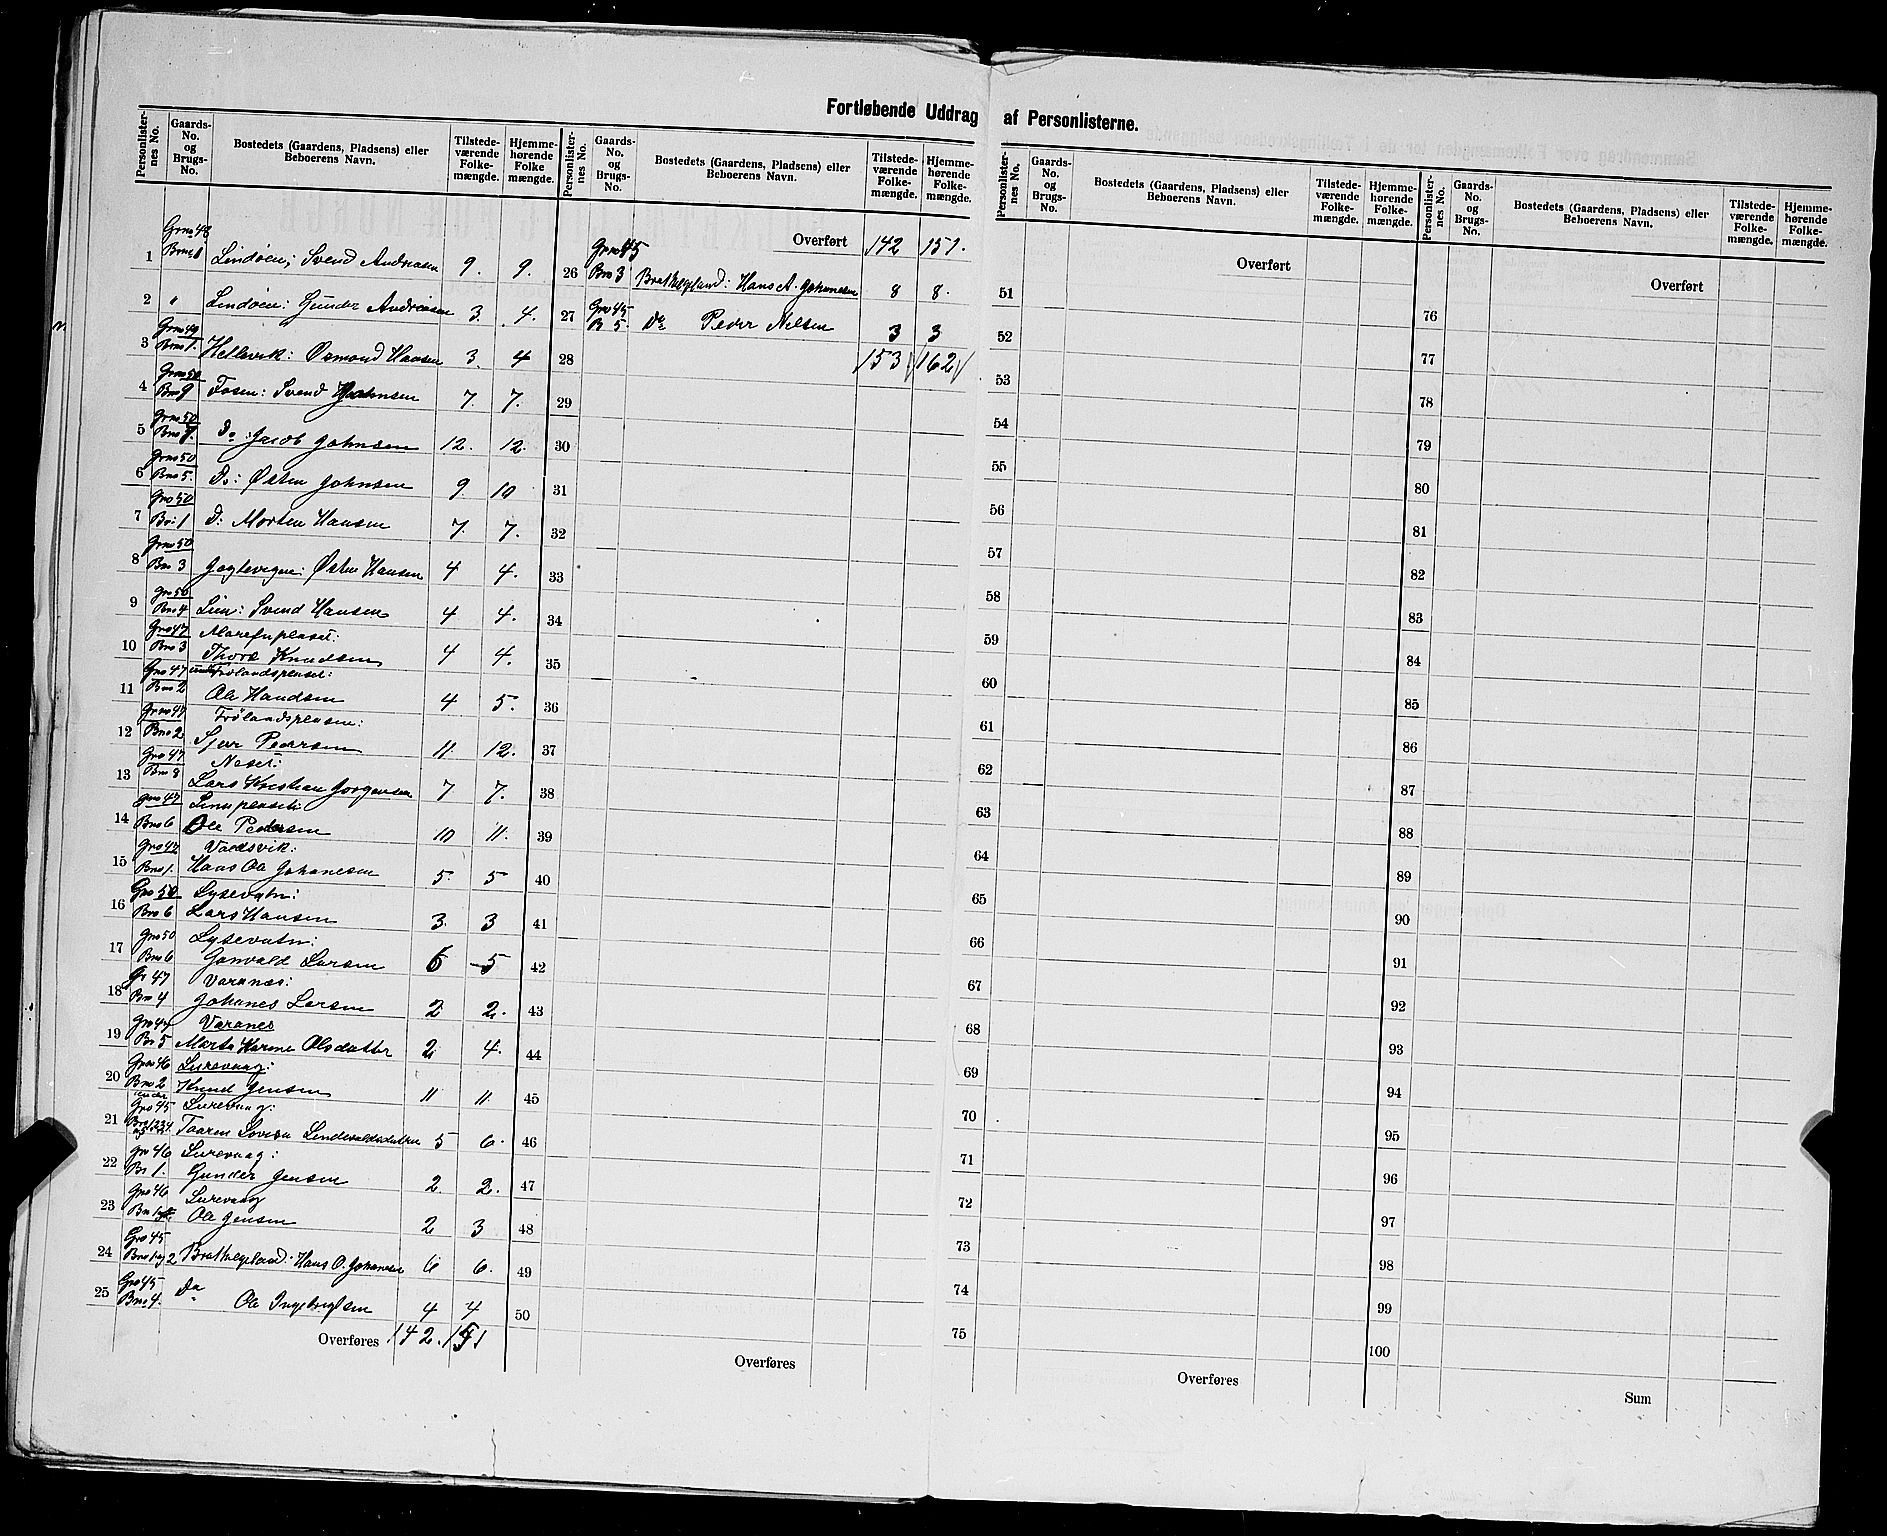 Fortløbende Uddrag af Personlisterne.
Personlister-nes No.
Gaards-No. og Brugs-No.
Bostedets (Gaardens, Pladsens) eller Beboerens Navn.
Tilstede-værende Folke-mængde.
Hjemme-hørende Folke mængde.
Personlister-nes No.
Gaards-No. og Brugs-No.
Bostedets (Gaardens, Pladsens) eller Beboerens Navn.
Tilstede-værende Folke-mængde.
Hjemme-hørende Folke-mængde.
Personlister-nes No.
Gaards-No. og Brugs-No.
Bostedets (Gaardens, Pladsens) eller Beboerens Navn.
Tilstede-værende Folke-mængde.
Hjemme-hørende Folke-mængde.
Personlister-nes No.
Gaards-No. og Brugs-No.
Bostedets (Gaardens, Pladsens) eller Beboerens Navn.
Tilstede-værende Folke-mængde.
Hjemme-hørende Folke-mængde.
Grno 48
1 Lindöen; Svend Andreasen 9. 9.
2 " Lindöen: Gunder Andreasen 3. 4.
Grno 49
3 Bno 1. Hellevik: Osmond Hansen 3. 4
Grno 50
4 Bno 9 Fosen: Svend Johnsen 7. 7.
Grno 50
5 Bno 7. Do: Jacob Johnsen 12. 12.
Grno 50
6 Bno 5. Do: Østen Johnsen 9. 10
Gno 50
7 Bno 1 Do: Morten Hansen 7. 7.
Grno 50
8 Bno 3 Østen Hansen 4 4.
Gno 50
9 Bno 4 Lien: Svend Hansen 4 4.
Gno 47
10 Bno 3 Thore Knudsen 4 4.
Gno 47
11 Bno 2 Ole 4 5.
Grno 47 Frölandspladsen:
12 Bno 2 Pedersen 11. 12.
Gno 47 Neset:
13 Bno 8 Lars Kristian Jörgensen 7 7.
Gno 47
14 Bno 6 Ole Pedersen 10 11.
Gno 47
15 Bno 1. Hans Ole Johanesen 5. 5
Gno 50 Lysevatn:
16 Bno 6 Lars Hansen 3. 3
Gno 50 Lysevatn:
17 Bno 6 Larsen 6 5
Gr 47 Varanes:
18 Bno 4 Johanes Larsen 2 2.
Gno 47 Varanes
19 Bno 5 Marta Karine Olsdatter 2 4.
Gno 46 Lurevaag:
20 Bno 2 Knud Jensen 11 11
Gno 45 Lurevaag:
21 Taaren Lovisa 5 6.
Gno 46 Lurevaag:
22 Bno 1. Gunder Jensen 2. 2.
Gno 46 Lurevaag
23 Ole Jensen 2 3
Gno 45
24 Bno 1 og 2 Brathelgeland: Hans O. Johansen 6 6.
Gno 45
25 Bno 4. Do Ole Ingebrigtsen 4 4
Overføres 142. 151
Overført 142 151.
Gno 45
26 Bno 3 Brathelgeland: Hans A. Johansen 8 8.
Gno 45
27 B 5. Do Peder Nelsen 3 3
28 153 162
29
30
31
32
33
34
35
36
37
38
39
40
41
42
43
44
45
46
47
48
49
50
Overføres
Overført
51
52
53
54
55
56
57
58
59
60
61
62
63
64
65
66
67
68
69
70
71
72
73
74
75
Overføres
Overført
76
77
78
79
80
81
82
83
84
85
86
87
88
89
90
91
92
93
94
95
96
97
98
99
100
Sum